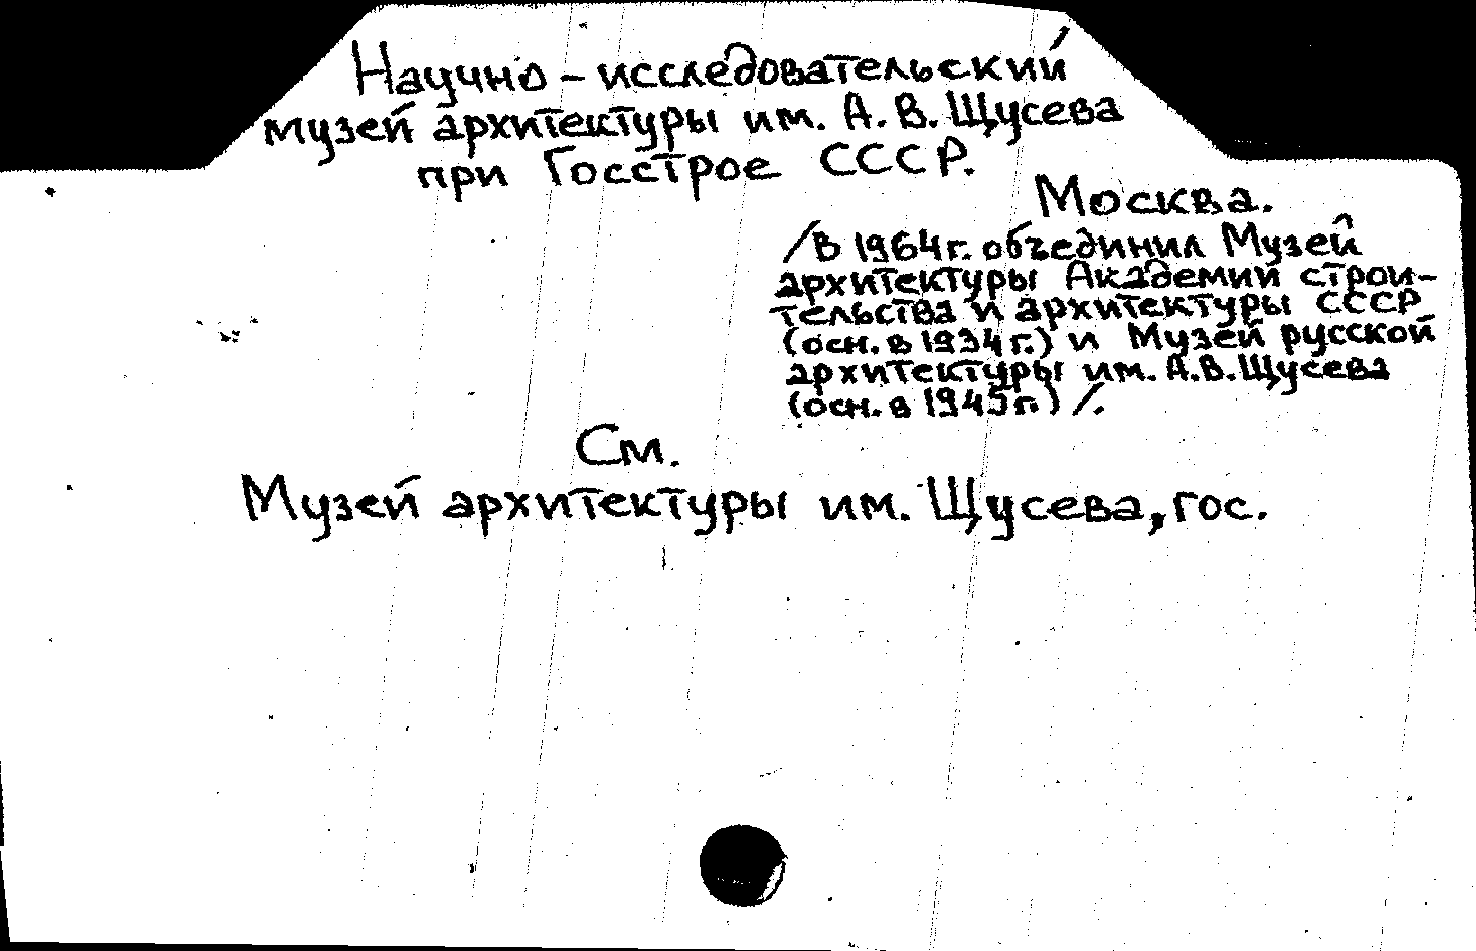 Научно-исследовательский
музей архитектуры им. А.В. Щусева
при Госстрое СССР.
Москва.
/В 1964г. объединил Музей
архитектуры Академии строи-
тельства и архитектуры СССР
(осн. в 1934 г.) и Музей русской
архитектуры им. А.В. Щусева
(осн. в 1945 г.) /.
См.
Музей архитектуры им. Щусева, гос.